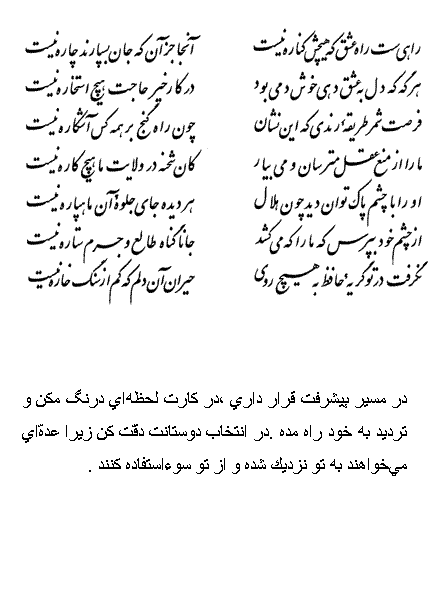 راهی‌ست راه عشق که هیچش کناره نیست آنجا جز آن که جان بسپارند چاره نیست
هر گه که دل به عشق دهی خوش دمی بود در کار خیر حاجت هیچ استخاره نیست
فرصت شمر طریقهٔ رندی که این نشان چون راه گنج بر همه کس آشکاره نیست
ما را ز منع عقل مترسان و می بیار کان شحنه در ولایت ما هیچ کاره نیست
او را به چشم پاک توان دید چون هلال هر دیده جای جلوهٔ آن ماهپاره نیست
از چشم خود بپرس که ما را که می‌کشد جانا گناه طالع و جرم ستاره نیست
نگرفت در تو گریهٔ حافظ به هیچ روی حیران آن دلم که کم از سنگ خاره نیست
در مسير پيشرفت قرار داري ،در كارت لحظه‌اي درنگ مكن و
ترديد به خود راه مده .در انتخاب دوستانت دقت كن زيرا عده‌اي
مي‌خواهند به تو نزديك شده و از تو سوءاستفاده كنند .